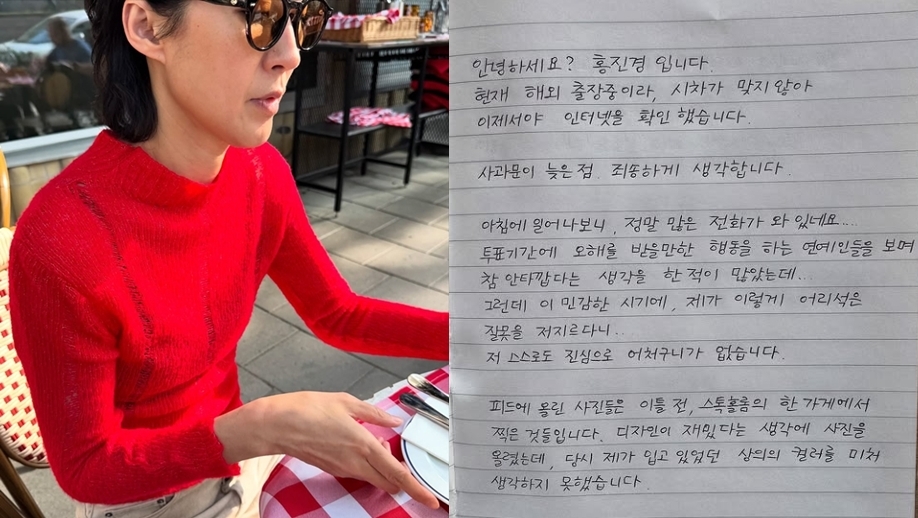 안녕하세요? 홍진경 입니다.
현재 해외 출장중이라, 시차가 맞지 않아
이제서야 인터넷을 확인 했습니다.
사과문이 늦은점 죄송하게 생각합니다.
아침에 일어나보니, 정말 많은 전화가 와 있네요...
투표기간에 오해를 받을만한 행동을 하는 연예인들을 보며
참 안타깝다는 생각을 한 적이 많았는데...
그런데 이 민감한 시기에, 제가 이렇게 어리석은
잘못을 저지르다니..
저 스스로도 진심으로 어처구니가 없습니다.
피드에 올린 사진들은 이틀 전, 스톡홀롬의 한 가게에서
찍은 것들입니다. 디자인이 재밌다는 생각에 사진을
올렸는데, 당시 제가 입고 있었던 상의의 컬러를 미처
생각하지 못했습니다.